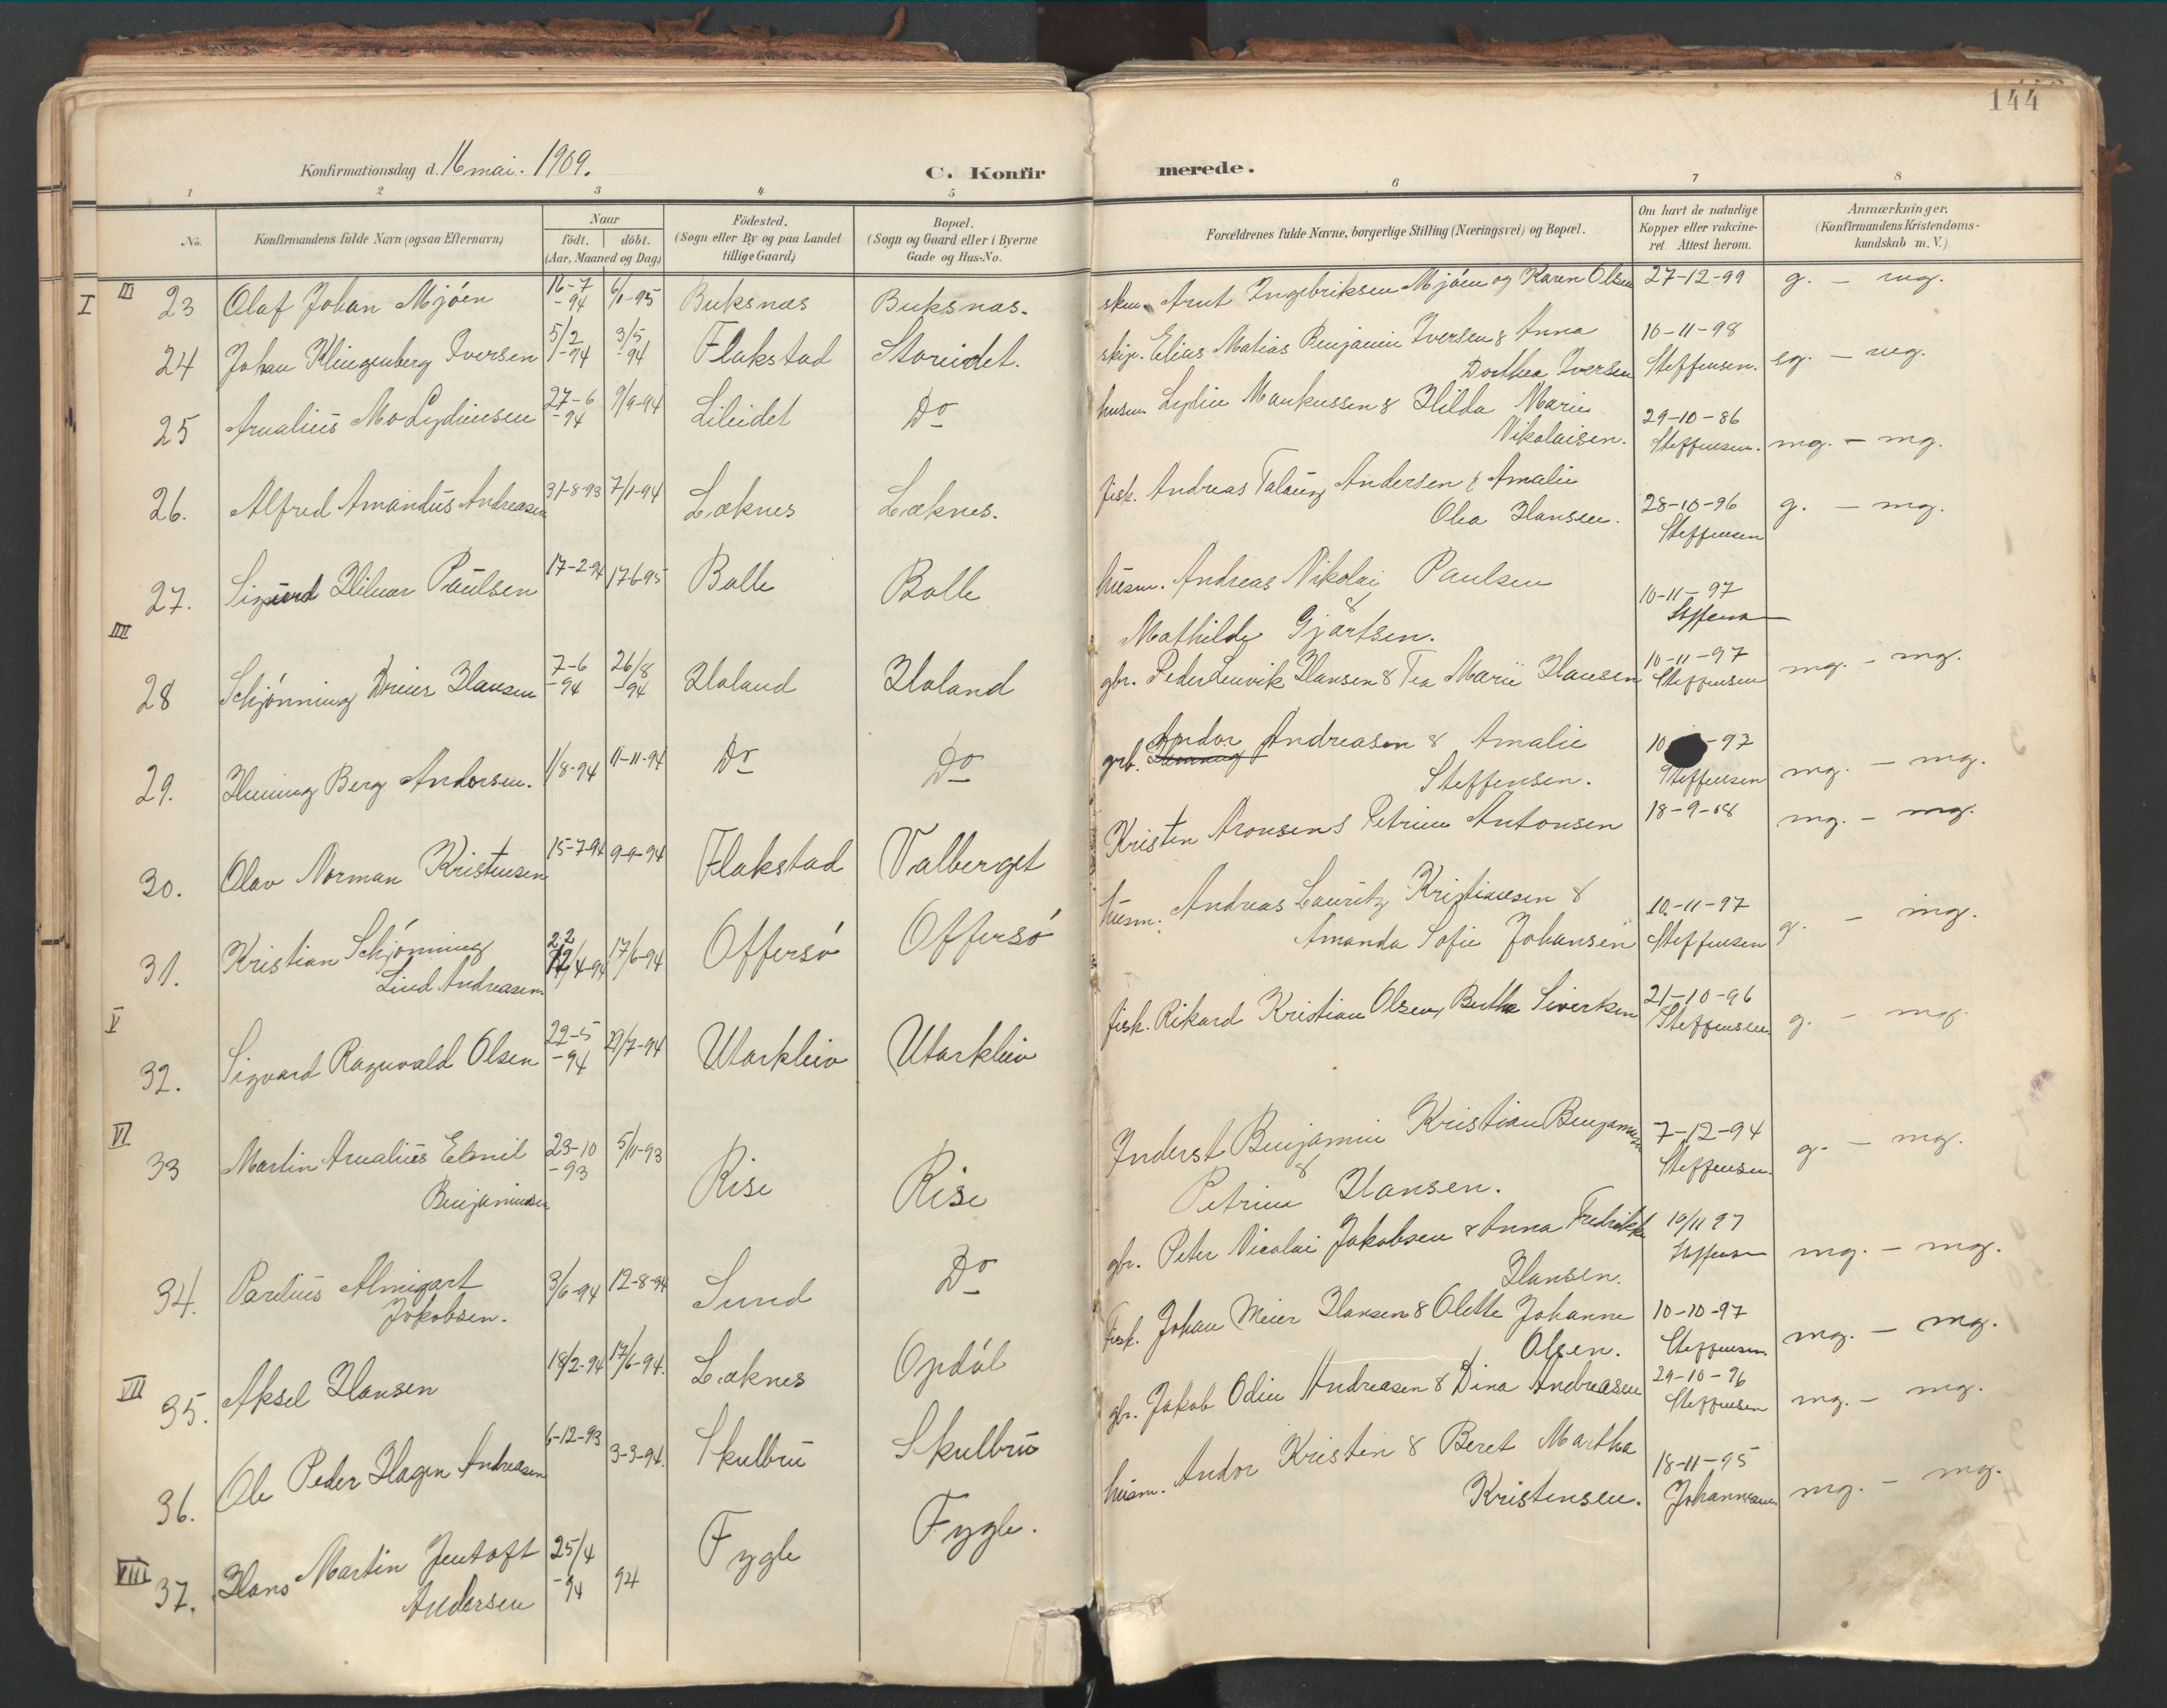 144
Konfirmationsdag d. 16 mai. 1909.
C. Konfirmerede.
1 2 3 4 5 6 7 8
No.
Konfirmandens fulde Navn (ogsaa Efternavn)
Naar
födt. döbt.
(Aar, Maaned og Dag)
Födested.
(Sogn eller By og paa Landet
tillige Gaard)
Bopæl.
(Sogn og Gaard eller i Byerne
Gade og Hus-No.
Forældrenes fulde Navne, borgerlige Stilling (Næringsvei) og Bopæl.
Om havt de naturlige
Kopper eller vakcine-
ret. Attest herom.
Anmærkninger.
(Konfirmandens Kristendoms-
kundskab m. V.)
I III 23 Olaf Johan Mjöen 16-7-94 6/1-95 Buksnæs Buksnæs. Arnt Ingebriksen Mjöen og Karen Olsen 27-12-99 g. - mg.
24 Johan Klingenberg Iversen 5/2-94 3/5-94 Flakstad Storeidet. skip. Elias Matias Benjamin Iversen & Anna
Dorthea Iversen 10-11-98 Steffensen. sg. - mg.
25 Arnalius Mo Lydiersen 27-6-94 9/9-94 Lileidet Do husm. Lydin Markussen & Hilda Marie
Nikolaisen. 29-10-86 Steffensen. mg. - mg.
26. Alfred Amandus Andreasen 31-8-93 7/1-94 Læknes Læknes. fisk. Andreas Andersen & Amalie
Olea Hansen. 28-10-96 Steffensen g. - mg.
27. Sigurd Hilmar Paulsen 17-2-94 17-6-95 Balle Balle husm. Andreas Nikolai Paulsen
&
Mathilde Gjärtsen. 10-11-97 Steffensen
IIII 28 Schjönning Dreier Hansen 7-6-94 26/8-94 Haland Haland gbr. Peder Lenvik Hansen & Tea Marie Hansen 10-11-97 Steffensen mg. - mg.
29. Henning Berg Andorsen. 1/8-94 11-11-94 Do Do grb. Andor Andreasen & Amalie
Steffensen. 10 -97 Steffensen mg. - mg.
30. Olav Norman Kristensen 15-7-94 9-9-94 Flakstad Valberget Kristen Aronsen & Petrine Antonsen 18-9-68 mg. - mg.
31. Kristian Schjönning
Lind Andreasen. 22/4-94 17/6-94 Offersö Offersö husm. Andreas Lauritz Kristiansen &
Amanda Sofie Johansen 10-11-97 Steffensen g. - mg.
V 32. Sigvard Ragnvald Olsen 22-5-94 29/7-94 Utakleiv Utakleiv fisk. Rikard Kristian Olsen, Berthe Siverksen 21-10-96 Steffensen g. - mg.
VI 33 Martin Arnalius Edmil
Benjaminsen 23-10-93 5/11-93 Rise Rise Inderst Benjamin Kristian Benjaminsen
&
Petrine Hansen. 7-12-94 Steffensen. g. - mg.
34. Parelius Almigart
Jakobsen. 3/6-94 12-8-94 Sund Do gbr. Peter Nicolai Jakobsen & Anna Fredrikke
Hansen. 10/11 97 Steffensen mg. - mg.
VII 35. Aksel Hansen 18/2-94 17/6-94. Læknes Opdöl Fisk. Johan Meier Hansen & Olette Johanne
Olsen. 10-10-97 Steffensen. mg. - mg.
36. Ole Peder Hagen Andreasen 6-12-93 3-3-94. Skulbru Skulbru gbr. Jakob Odin Andreasen & Dina Andreasen 29-10-96 Steffensen mg. - mg.
VIII 37. Hans Martin Jentoft
Andersen 25/4-94 94 Fygle Fygle. husm. Andor Kristen & Beret Martha
Kristensen. 18-11-95 Johannesen mg. - mg.